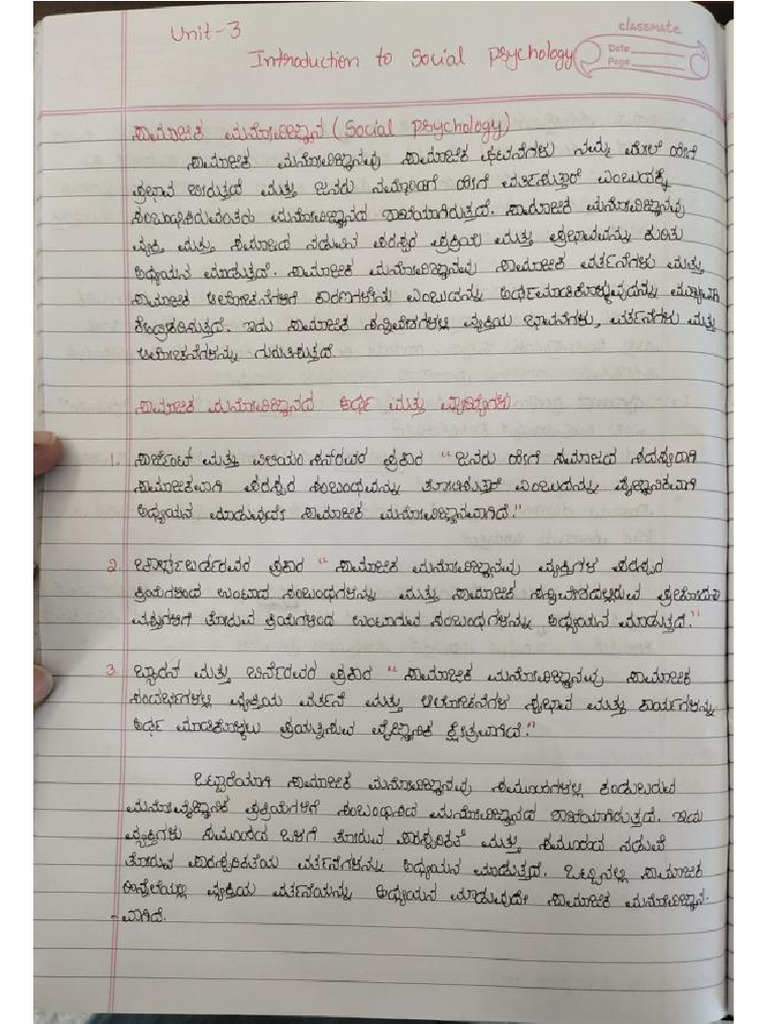 Unit-3
classmate
Date
Page
Introduction to Social psychology
ಸಾಮಾಜಿಕ ಮನೋವಿಜ್ಞಾನ (Social psychology)
ಸಾಮಾಜಿಕ ಮನೋವಿಜ್ಞಾನವು ಸಾಮಾಜಿಕ ಘಟನೆಗಳು ನಮ್ಮ ಮೇಲೆ ಹೇಗೆ
ಪ್ರಭಾವ ಬೀರುತ್ತವೆ ಮತ್ತು ಜನರು ನಮ್ಮೊಂದಿಗೆ ಹೇಗೆ ವರ್ತಿಸುತ್ತಾರೆ ಎಂಬುದಕ್ಕೆ
ಸಂಬಂಧಿಸಿರುವಂತಹ ಮನೋವಿಜ್ಞಾನದ ಶಾಖೆಯಾಗಿರುತ್ತದೆ. ಸಾಮಾಜಿಕ ಮನೋವಿಜ್ಞಾನವು
ವ್ಯಕ್ತಿ ಮತ್ತು ಸಮಾಜದ ನಡುವಿನ ಪರಸ್ಪರ ಪ್ರಕ್ರಿಯೆ ಮತ್ತು ಪ್ರಭಾವವನ್ನು ಕುರಿತು
ಅಧ್ಯಯನ ಮಾಡುತ್ತದೆ. ಸಾಮಾಜಿಕ ಮನೋವಿಜ್ಞಾನವು ಸಾಮಾಜಿಕ ವರ್ತನೆಗಳು ಮತ್ತು
ಸಾಮಾಜಿಕ ಆಲೋಚನೆಗಳಿಗೆ ಕಾರಣಗಳೇನು ಎಂಬುದನ್ನು ಅರ್ಥಮಾಡಿಕೊಳ್ಳುವುದನ್ನು ಮುಖ್ಯವಾಗಿ
ಕೇಂದ್ರೀಕರಿಸುತ್ತದೆ. ಇದು ಸಾಮಾಜಿಕ ಸನ್ನಿವೇಶಗಳಲ್ಲಿ ವ್ಯಕ್ತಿಯ ಭಾವನೆಗಳು, ವರ್ತನೆಗಳು ಮತ್ತು
ಆಲೋಚನೆಗಳನ್ನು ಗುರುತಿಸುತ್ತದೆ.
ಸಾಮಾಜಿಕ ಮನೋವಿಜ್ಞಾನದ ಅರ್ಥ ಮತ್ತು ವ್ಯಾಖ್ಯೆಗಳು
1. ಸಾರ್ಜೆಂಟ್ ಮತ್ತು ವಿಲಿಯಂ ಸನ್‌ರವರ ಪ್ರಕಾರ "ಜನರು ಹೇಗೆ ಸಮಾಜದ ಸದಸ್ಯರಾಗಿ
ಸಾಮಾಜಿಕವಾಗಿ ಪರಸ್ಪರ ಸಂಬಂಧವನ್ನು ತೋರಿಸುತ್ತಾರೆ ಎಂಬುದನ್ನು ವೈಜ್ಞಾನಿಕವಾಗಿ
ಅಧ್ಯಯನ ಮಾಡುವುದೇ ಸಾಮಾಜಿಕ ಮನೋವಿಜ್ಞಾನವಾಗಿದೆ."
2. ಪ್ರಕಾರ "ಸಾಮಾಜಿಕ ಮನೋವಿಜ್ಞಾನವು ವ್ಯಕ್ತಿಗಳ ಪರಸ್ಪರ
ಕ್ರಿಯೆಗಳಿಂದ ಉಂಟಾದ ಸಂಬಂಧಗಳನ್ನು ಮತ್ತು ಸಾಮಾಜಿಕ ಸನ್ನಿವೇಶದಲ್ಲಿರುವ ಪ್ರಚೋದಿತ
ವಸ್ತುಗಳಿಗೆ ತೋರುವ ಕ್ರಿಯೆಗಳಿಂದ ಉಂಟಾಗುವ ಸಂಬಂಧಗಳನ್ನು ಅಧ್ಯಯನ ಮಾಡುತ್ತದೆ."
3. ಬ್ಯಾರನ್ ಮತ್ತು ಬಿರ್ನೆರವರ ಪ್ರಕಾರ "ಸಾಮಾಜಿಕ ಮನೋವಿಜ್ಞಾನವು ಸಾಮಾಜಿಕ
ಸಂದರ್ಭಗಳಲ್ಲಿ ವ್ಯಕ್ತಿಯ ವರ್ತನೆ ಮತ್ತು ಆಲೋಚನೆಗಳ ಸ್ವಭಾವ ಮತ್ತು ಕಾರ್ಯಗಳನ್ನು
ಅರ್ಥ ಮಾಡಿಕೊಳ್ಳಲು ಪ್ರಯತ್ನಿಸುವ ವೈಜ್ಞಾನಿಕ ಕ್ಷೇತ್ರವಾಗಿದೆ."
ಒಟ್ಟಾರೆಯಾಗಿ ಸಾಮಾಜಿಕ ಮನೋವಿಜ್ಞಾನವು ಸಮೂಹಗಳಲ್ಲಿ ಕಂಡುಬರುವ
ಮನೋವೈಜ್ಞಾನಿಕ ಪ್ರಕ್ರಿಯೆಗಳಿಗೆ ಸಂಬಂಧಿಸಿದ ಮನೋವಿಜ್ಞಾನದ ಶಾಖೆಯಾಗಿರುತ್ತದೆ. ಇದು
ವ್ಯಕ್ತಿಗಳು ಸಮೂಹದ ಒಳಗೆ ತೋರುವ ಪಾರಸ್ಪರಿಕತೆ ಮತ್ತು ಸಮೂಹದ ನಡುವೆ
ತೋರುವ ಪಾರಸ್ಪರಿಕತೆಯ ವರ್ತನೆಗಳನ್ನು ಅಧ್ಯಯನ ಮಾಡುತ್ತದೆ. ಒಟ್ಟಿನಲ್ಲಿ ಸಾಮಾಜಿಕ
ಹಿನ್ನೆಲೆಯಲ್ಲಿ ವ್ಯಕ್ತಿಯ ವರ್ತನೆಯನ್ನು ಅಧ್ಯಯನ ಮಾಡುವುದೇ ಸಾಮಾಜಿಕ ಮನೋವಿಜ್ಞಾನ-
-ವಾಗಿದೆ.